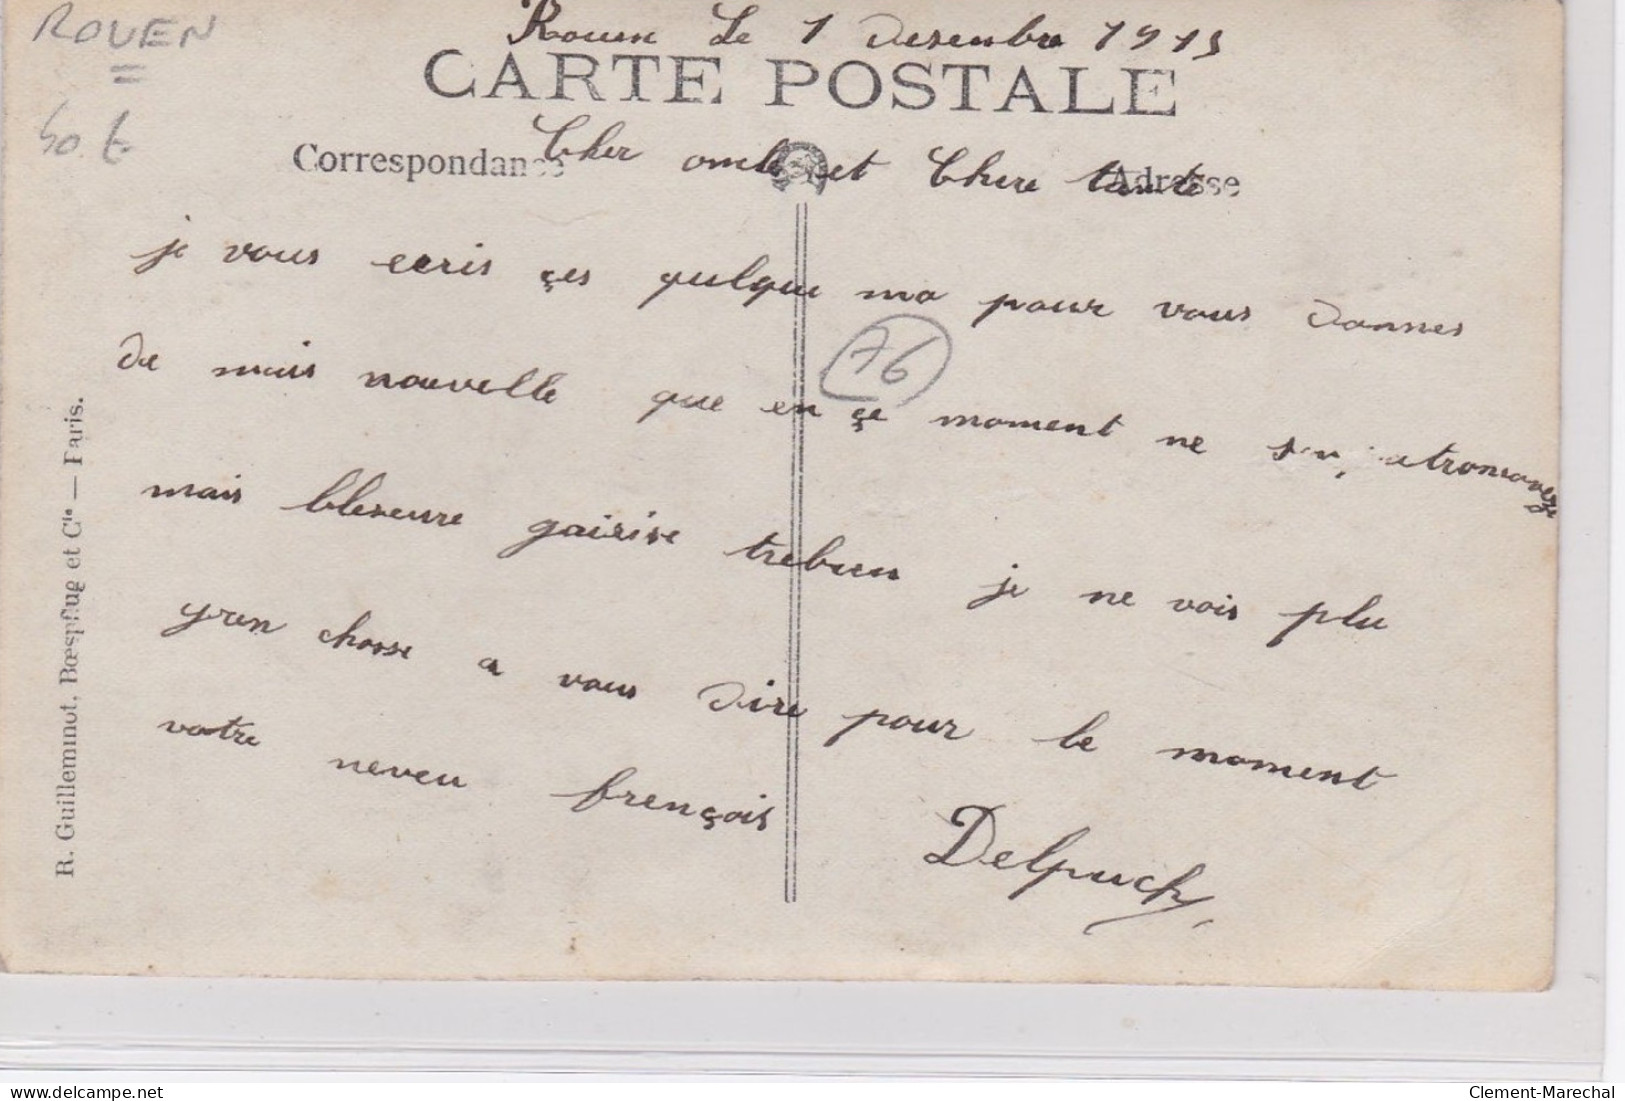 ROUEN
Rouen Le 1 desenbre 1915
CARTE POSTALE
Correspondance
Adresse
Cher oncle et Chere tante
je vous ecris çes qulque mo pour vous donnes
de mais nouvelle que en çe moment ne
mais bleseure gairise trebien je ne vois plu
gren chosse a vous dire pour le moment
votre neveu frençois
Delpuch
76
R. Guilleminot, Bœspflug et Cie — Paris.
delcampe.net
Clement-Marechal